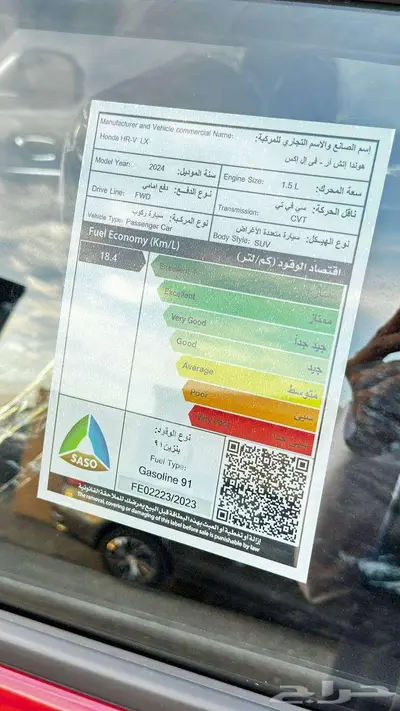 Manufacturer and Vehicle commercial Name: إسم الصانع والاسم التجاري للمركبة:
Honda HR-V LX هوندا إتش آر - في إل إكس
Model Year: 2024 سنة الموديل: Engine Size: 1.5 L سعة المحرك:
Drive Line: دفع امامي نوع الدفع: Transmission: سي في تي ناقل الحركة:
FWD CVT
Vehicle Type: سيارة ركوب نوع المركبة: Body Style: سيارة متعددة الأغراض نوع الهيكل:
Passenger Car SUV
Fuel Economy (Km/L) اقتصاد الوقود (كم/لتر)
18.4 Excellent
Excellent ممتاز
Very Good جيد جداً
Good جيد
Average متوسط
Poor سيئ
Very Poor سيئ جداً
نوع الوقود:
بنزين ٩١
Fuel Type:
Gasoline 91
FE02223/2023
SASO
إزالة أو تغطية أو العبث بهذه البطاقة قبل البيع يعرضك للملاحقة القانونية
The removal, covering or damaging of this label before sale is punishable by law
حراج